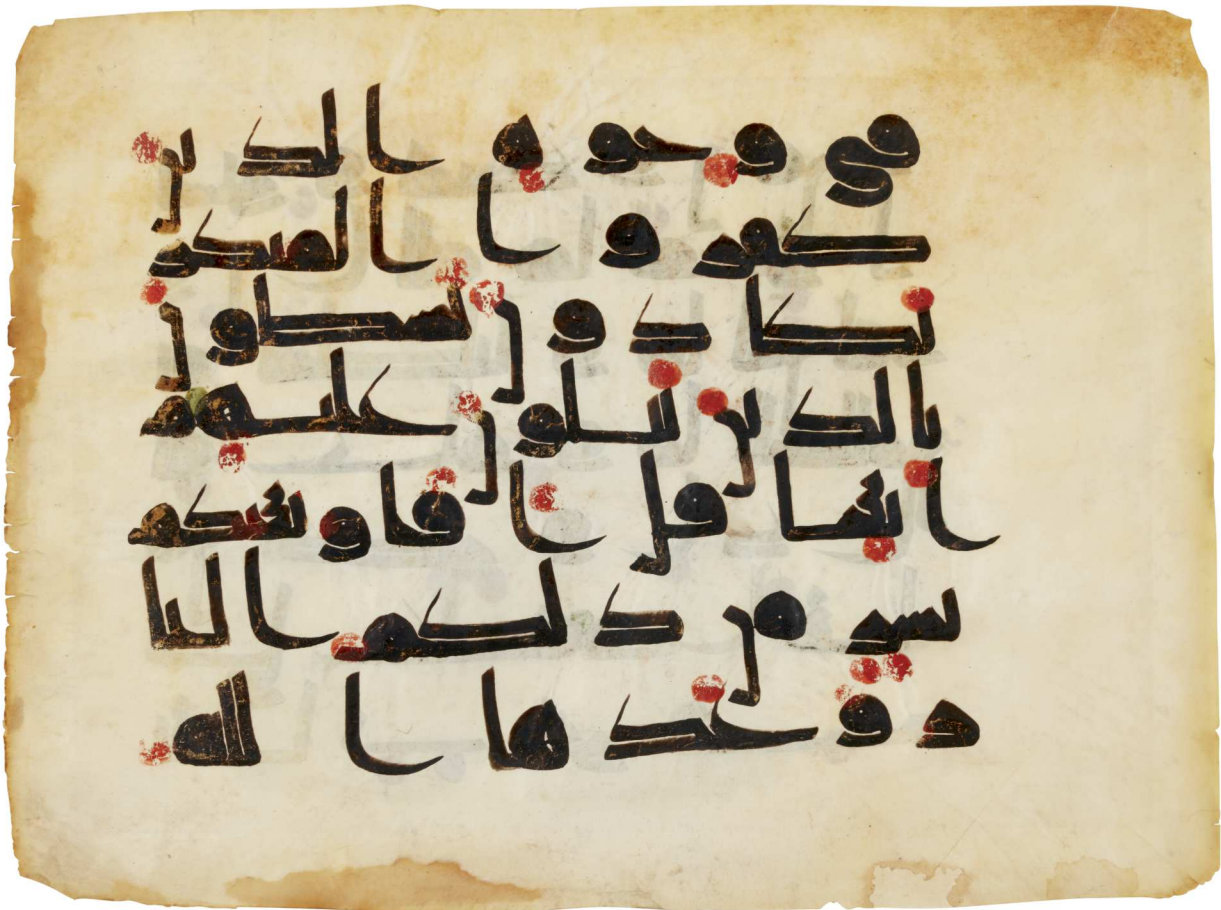 في وجوه الذين
كفروا المنكر
يكادون يسطون
بالذين يتلون عليهم
ايتنا قل افاونبيكم
بشر من ذلكم النا
ر وعدها الله